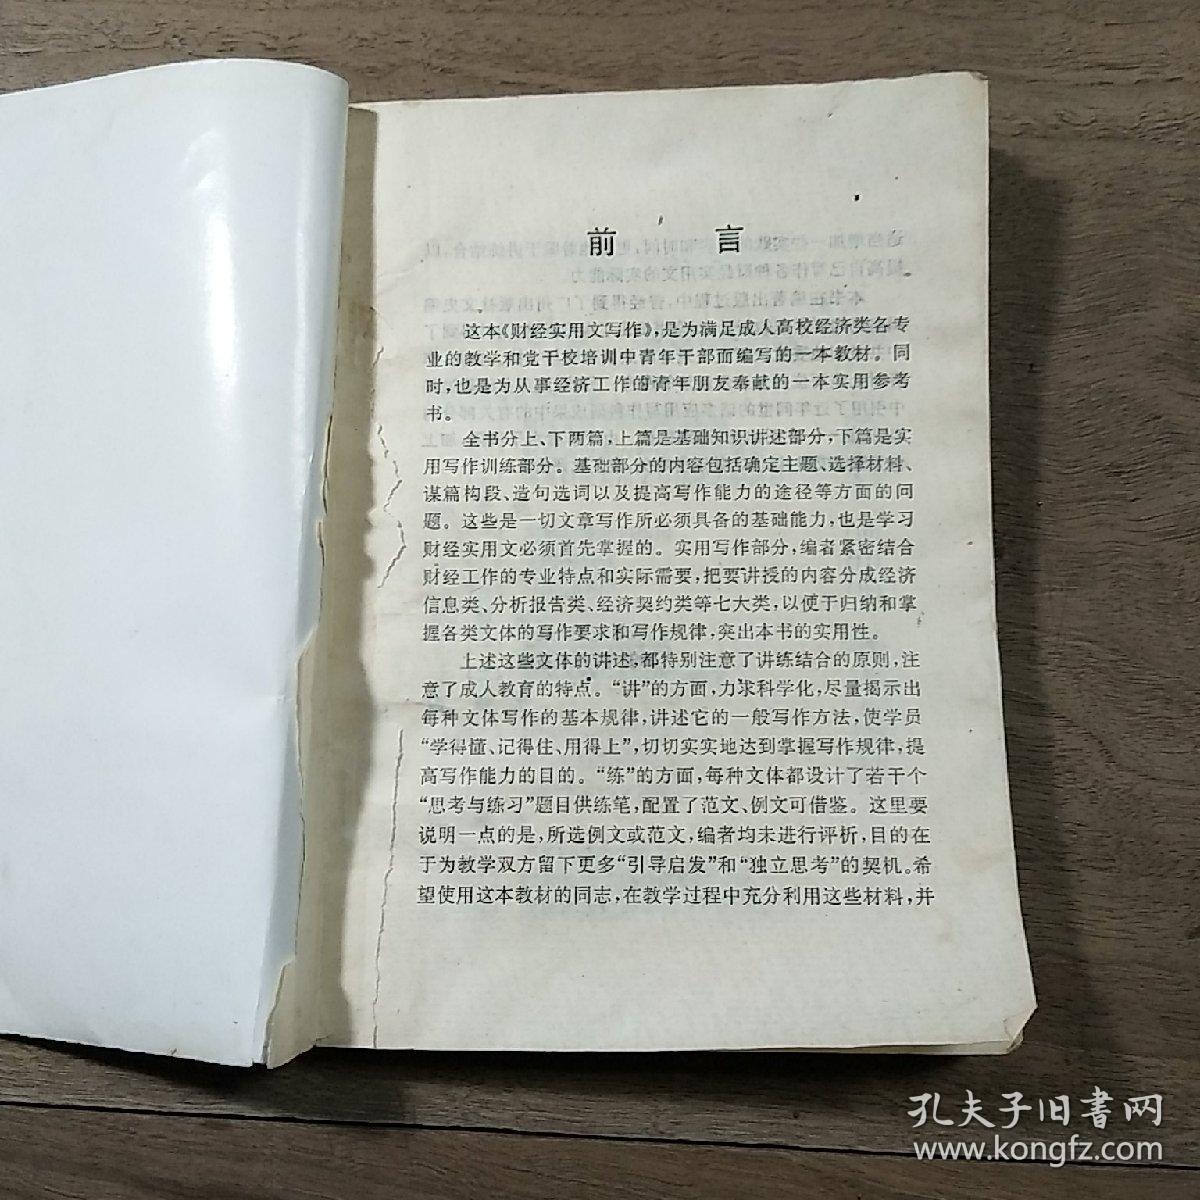 前言
这本《财经实用文写作》，是为满足成人高校经济类各专
业的教学和党干校培训中青年干部而编写的一本教材。同
时，也是为从事经济工作的青年朋友奉献的一本实用参考
书。
全书分上、下两篇，上篇是基础知识讲述部分，下篇是实
用写作训练部分。基础部分的内容包括确定主题、选择材料、
谋篇构段、造句选词以及提高写作能力的途径等方面的问
题。这些是一切文章写作所必须具备的基础能力，也是学习
财经实用文必须首先掌握的。实用写作部分，编者紧密结合
财经工作的专业特点和实际需要，把要讲授的内容分成经济
信息类、分析报告类、经济契约类等七大类，以便于归纳和掌
握各类文体的写作要求和写作规律，突出本书的实用性。
上述这些文体的讲述，都特别注意了讲练结合的原则，注
意了成人教育的特点。“讲”的方面，力求科学化，尽量揭示出
每种文体写作的基本规律，讲述它的一般写作方法，使学员
“学得懂、记得住、用得上”，切切实实地达到掌握写作规律，提
高写作能力的目的。“练”的方面，每种文体都设计了若干个
“思考与练习”题目供练笔，配置了范文、例文可借鉴。这里要
说明一点的是，所选例文或范文，编者均未进行评析，目的在
于为教学双方留下更多“引导启发”和“独立思考”的契机。希
望使用这本教材的同志，在教学过程中充分利用这些材料，并
孔夫子旧書网
www.kongfz.com